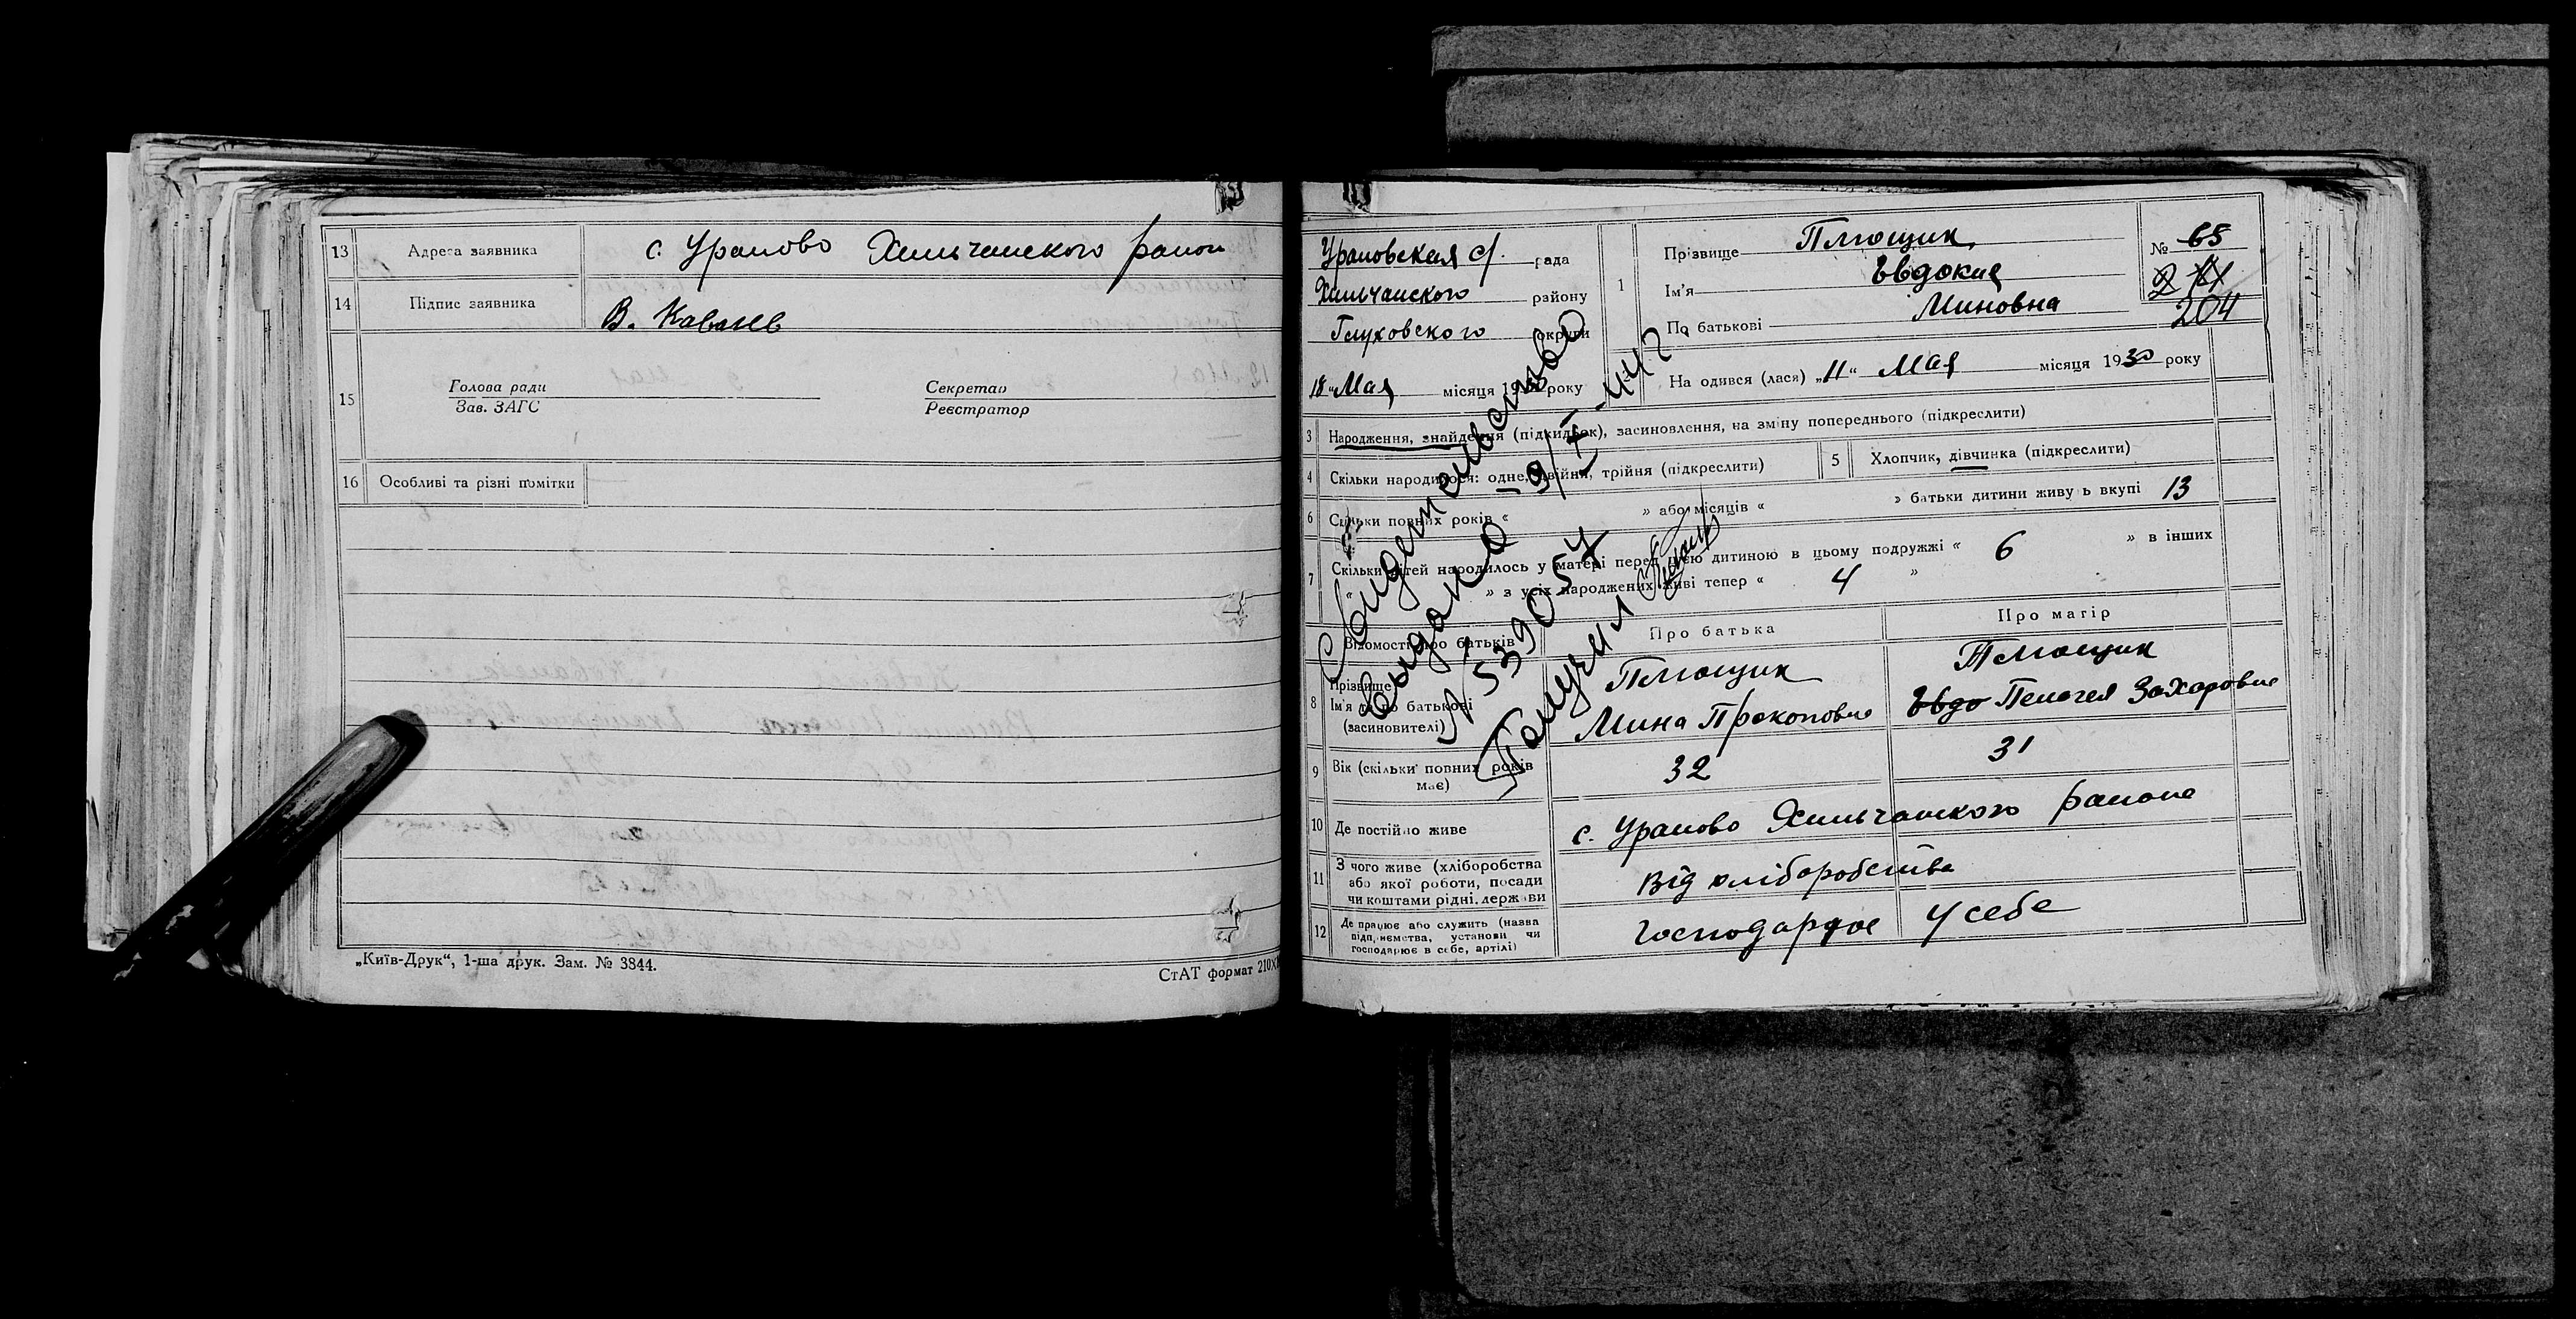 13 Адреса заявника с. Уралово Хильчанского район
14 Підпис заявника В. Ковалев
15 Голова ради
Зав. ЗАГС
Секретар
Реєстратор
16 Особливі та різні помітки —
„Київ-Друк“, 1-ша друк. Зам. № 3844.
СтАТ формат 210X
Ураловская с/ рада
Хильчанского району
Глуховского округи
18 „ Мая місяця 1930 року
1 Прізвище Плющик
Ім'я Евдокия
По батькові Миновна
№ 65
204
На одився (лася) „11“ Мая місяця 1930 року
3 Народження, знайдення (підкидьок), засиновлення, на зміну попереднього (підкреслити)
4 Скільки народилося: одне, двійня, трійня (підкреслити)
5 Хлопчик, дівчинка (підкреслити)
6 Скільки повних років « » або місяців « » батьки дитини живу ь вкупі 13
7 Скільки дітей народилось у матері перед цією дитиною в цьому подружжі « 6 » в інших
« » з усіх народжених живі тепер « 4 »
Свидетельство
выдано 9/V-44 г.
№ 539054
Получил
Відомості про батьків
Про батька
Про матір
8 Прізвище
Ім'я та по батькові
(засновителі)
Плющик
Мина Прокопович
Плющик
Евдо Пелагея Захаровна
9 Вік (скільки повних років має) 32 31
10 Де постійно живе с. Уралово Хильчанского района
11 З чого живе (хліборобства
або якої роботи, посади
чи коштами рідні, держави
Від хліборобства
12 Де працює або служить (назва
підп иємства, установи чи
господарює в себе, артілі)
Господарює у себе